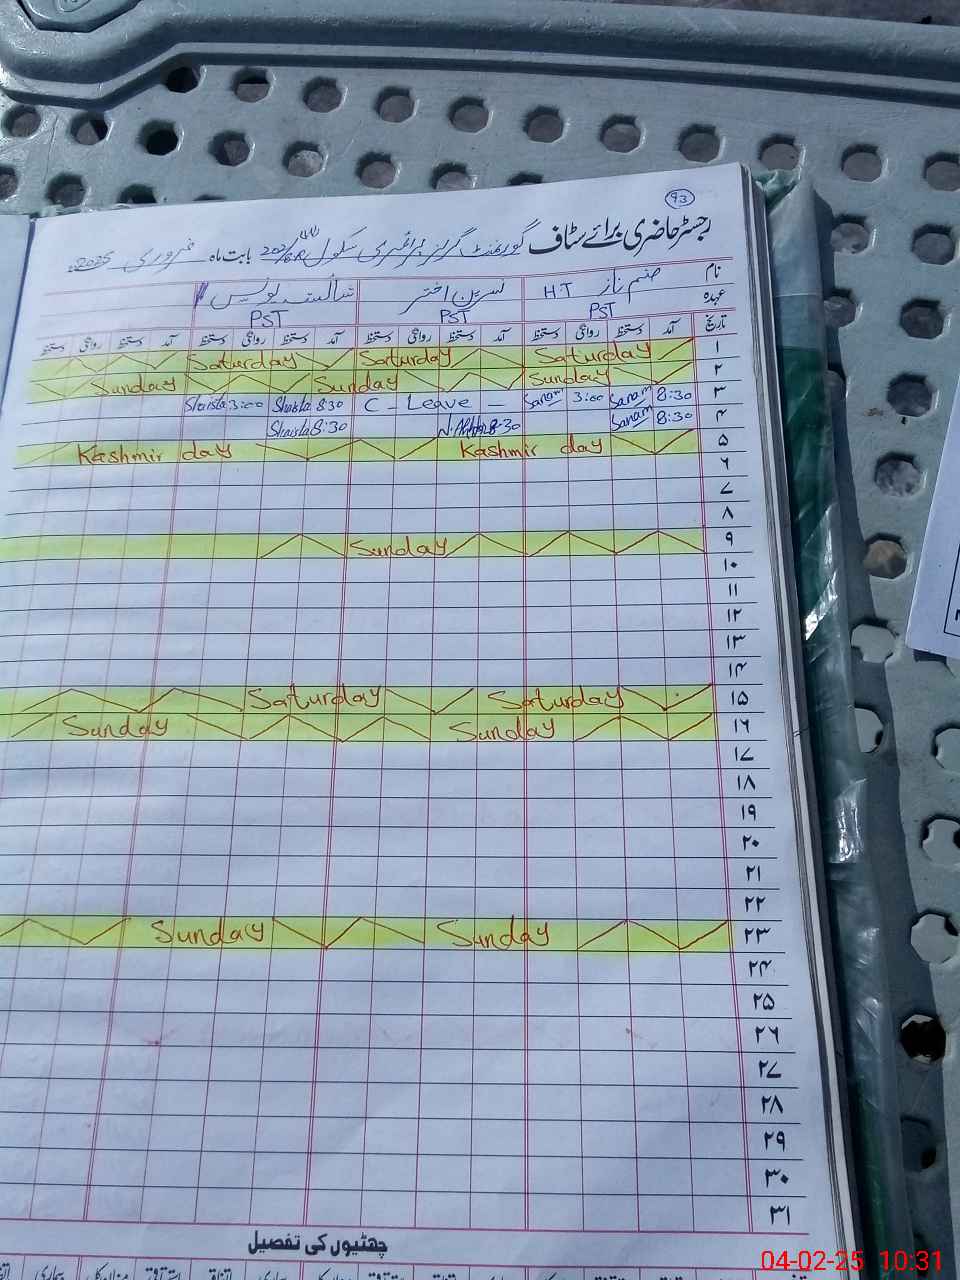 93
رجسٹر حاضری برائے سٹاف گورنمنٹ گرلز پرائمری سکول بابت ماہ فروری 2025ء
نام صنم ناز HT نسرین اختر شائستہ یونس
عہدہ PST PST PST
تاریخ آمد دستخط روانگی دستخط آمد دستخط روانگی دستخط آمد دستخط روانگی دستخط آمد دستخط روانگی دستخط
۱ Saturday Saturday Saturday
۲ Sunday Sunday Sunday
۳ 8:30 Sanam 3:00 Sanam C - Leave - 8:30 Shaista 3:00 Shaista
۴ 8:30 Sanam 8:30 N.Akhtar 8:30 Shaista
۵ Kashmir day Kashmir day
۶
۷
۸
۹ Sunday
۱۰
۱۱
۱۲
۱۳
۱۴
۱۵ Saturday Saturday
۱۶ Sunday Sunday
۱۷
۱۸
۱۹
۲۰
۲۱
۲۲
۲۳ Sunday Sunday
۲۴
۲۵
۲۶
۲۷
۲۸
۲۹
۳۰
۳۱
چھٹیوں کی تفصیل
04-02-25 10:31